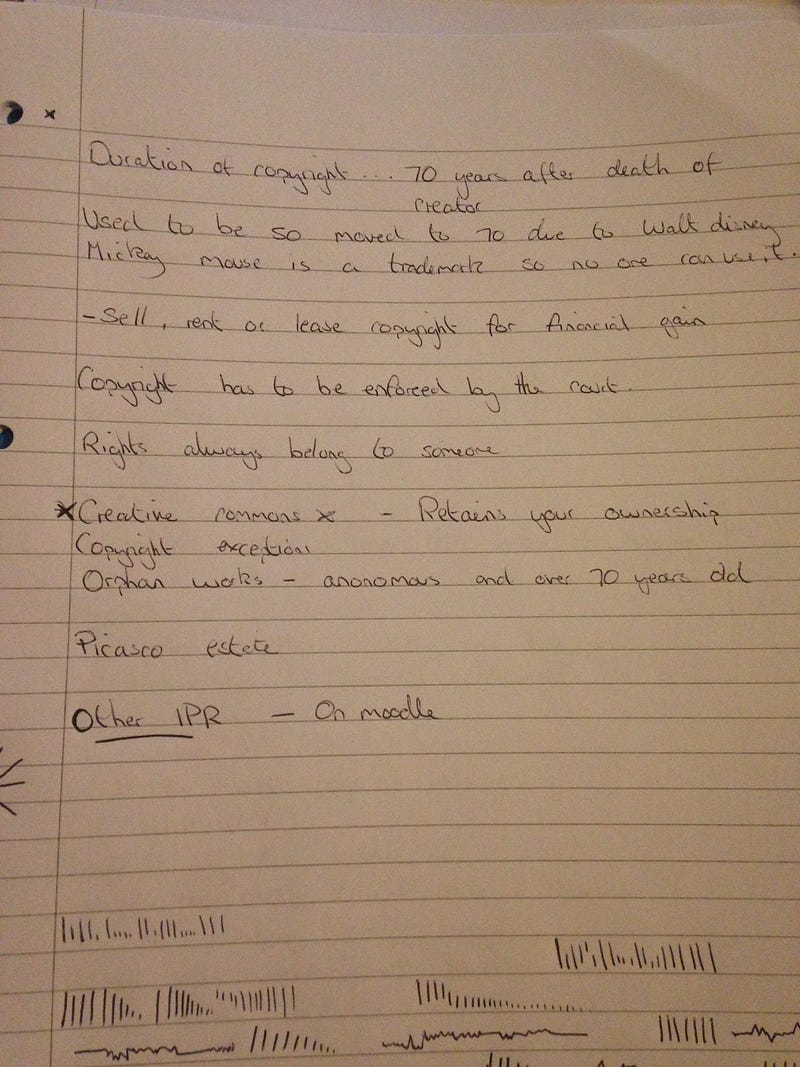 Duration of copyright ... 70 years after death of
creator
Used to be 50 moved to 70 due to Walt disney
Mickay mouse is a trademark so no one can use it.
- Sell, rent or lease copyright for financial gain
Copyright has to be enforced by the court.
Rights always belong to someone
x Creative commons x - Retains your ownership
Copyright exceptions
Orphan works - anonomous and over 70 years old
Picasco estate
Other IPR - On moodle